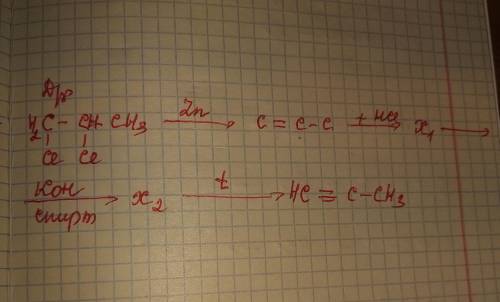 Др
H₂C – CH – CH₃ —Zn→ C = C – C —+ HCl→ X₁ →
Cl Cl
—KOH спирт→ X₂ —t→ HC ≡ C – CH₃